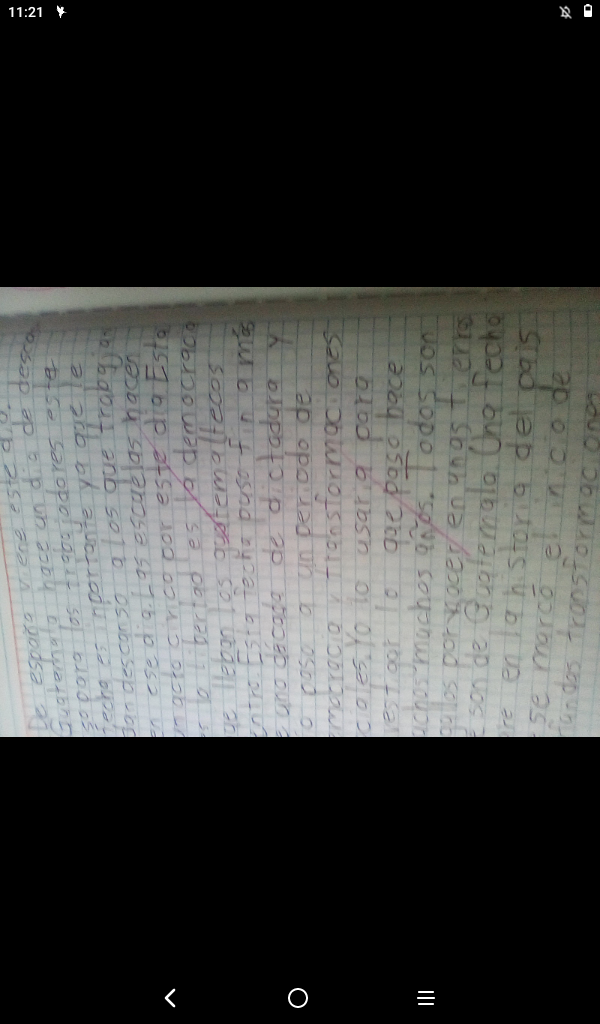 11:21
De españa viene este día.
Guatemala hace un dia de desca
so para los trabajadores esta
fecha es inportante ya que le
dan descanso a los que trabajan
en ese dia. Las escuelas hacen
un acto civico por este dia Esta
es la libertad es la democracia
que lleban los guatemaltecos
entre. Esta fecha puso fin a más
e una decada de dictadura y
o paso a un periodo de
mocracia y transformaciones
ciales. Yo lo usaria para
vestigar lo que paso hace
uchos muchos años. Todos son
por nacer en unas tierra
e son de Guatemala Una fecha
bre en la historia del pais
se marcó el inicio de
fundas transformaciones